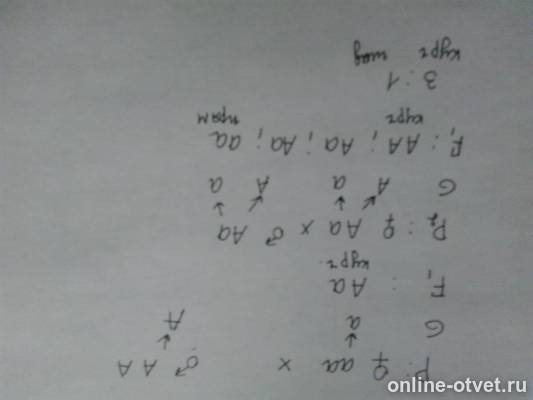 P: ♀ aa x ♂ AA
↓ ↓
G a A
F₁ : Aa
курч.
P₂ : ♀ Aa x ♂ Aa
↙ ↓ ↙ ↓
G A a A a
F₁ : AA ; Aa ; Aa ; aa
курч прям
3 : 1
курч
online-otvet.ru